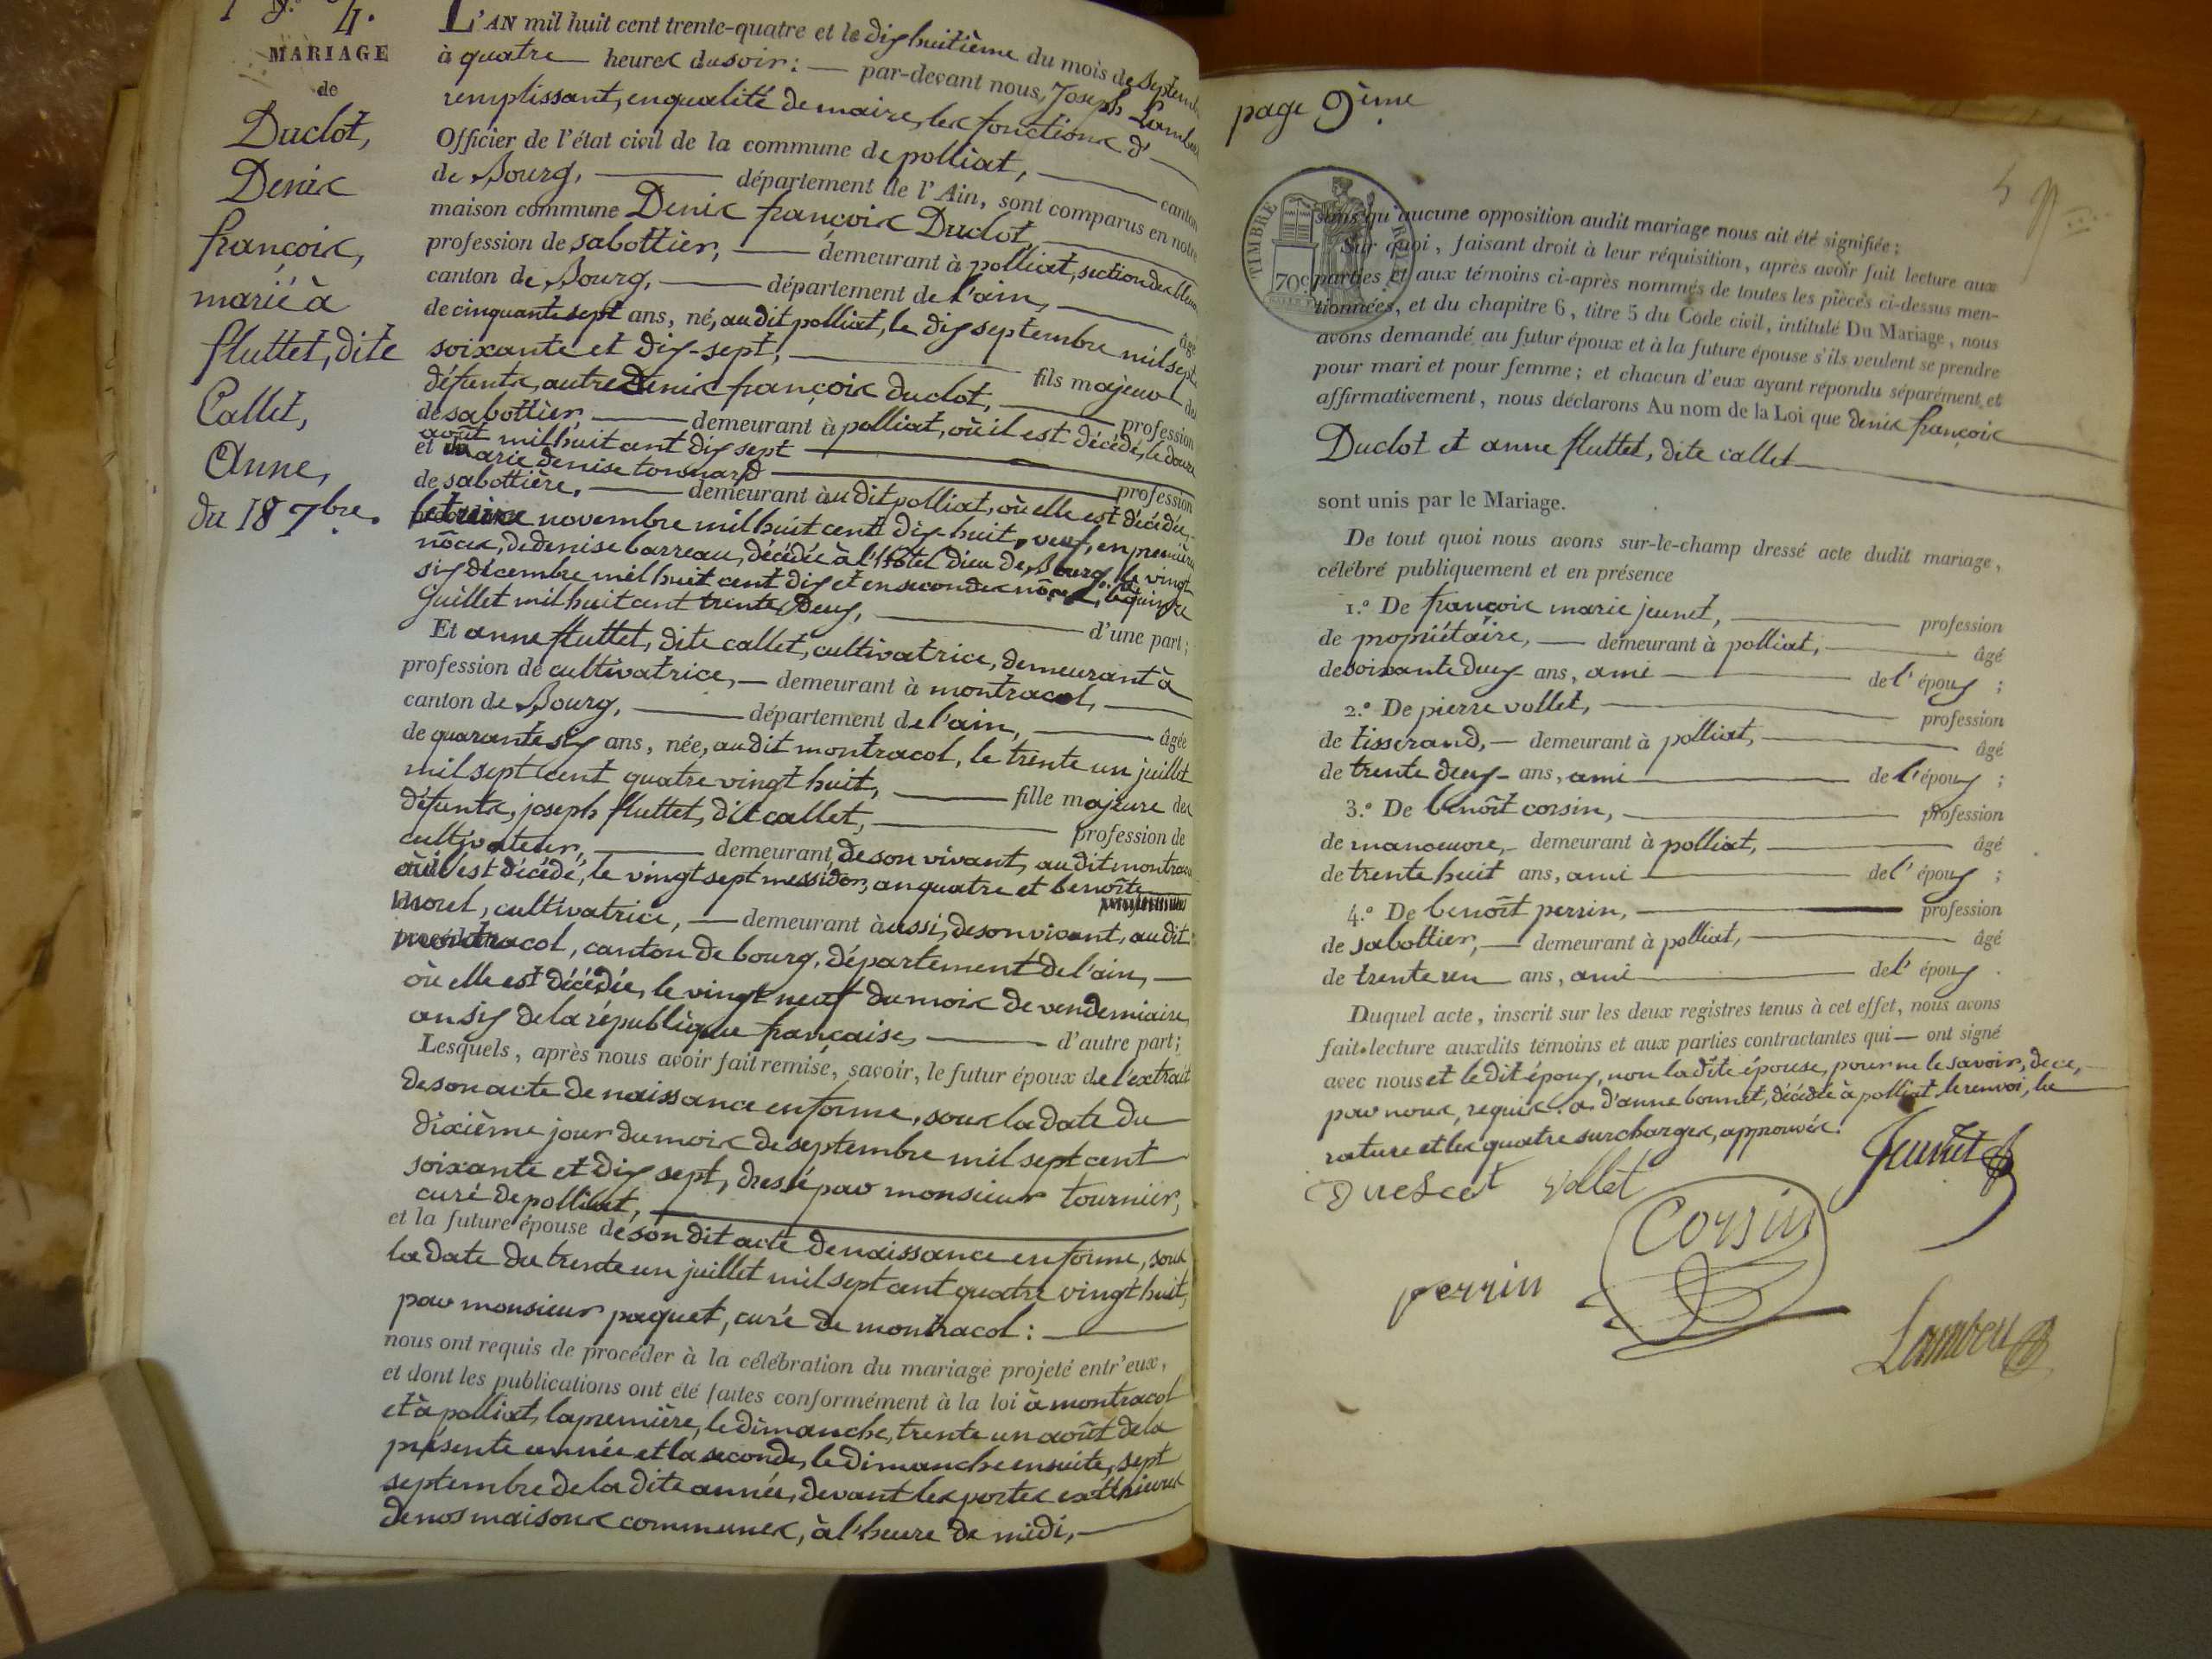 4.
MARIAGE
de
Duclot,
Denis
françois,
marié à
fluttet, dite
Callet,
Anne,
du 18 7bre.
L'AN mil huit cent trente-quatre et le dix huitième du mois de septemb
à quatre heures du soir : par-devant nous, Joseph Lambe
remplissant, en qualité de maire, les fonctions d'
Officier de l'état civil de la commune de polliat, canton
de Bourg, département de l'Ain, sont comparus en notre
maison commune Denis françois Duclot,
profession de sabottier, demeurant à polliat, section des
canton de Bourg, département de l'ain, âgé
de cinquante sept ans, né, audit polliat, le dix septembre mil sept
soixante et dix-sept, fils majeur des
défunts, autre denis françois duclot, profession
de sabottier, demeurant à polliat, où il est décédé, le douze
août mil huit cent dix sept
et marie denise tonnard profession
de sabottière, demeurant audit polliat, où elle est décédée,
le treize novembre mil huit cent dix-huit, veuf, en premières
nôces, de denise barreau, décédée à l'Hôtel Dieu de Bourg, le vingt
six décembre mil huit cent dix et en secondes nôces, le quinze
juillet mil huit cent trente deux, d'une part ;
Et anne fluttet, dite callet, cultivatrice, demeurant à
profession de cultivatrice, demeurant à montracol,
canton de Bourg, département de l'ain, âgée
de quarante six ans, née, audit montracol, le trente un juillet
mil sept cent quatre vingt huit, fille majeure des
défunts, joseph fluttet, dit callet, profession de
cultivateur, demeurant, de son vivant, audit montracol
où il est décédé, le vingt sept messidor, an quatre et benoîte
morel, cultivatrice, demeurant aussi, de son vivant, audit
montracol, canton de bourg, département de l'ain,
où elle est décédée, le vingt neuf du mois de vendemiaire
an six de la république française, d'autre part ;
Lesquels, après nous avoir fait remise, savoir, le futur époux de l'extrait
de son acte de naissance en forme, sous la date du
dixième jour du mois de septembre mil sept cent
soixante et dix sept, dressé par monsieur tournier,
curé de polliat,
et la future épouse de son dit acte de naissance en forme, sous
la date du trente un juillet mil sept cent quatre vingt huit,
par monsieur paquet, curé de montracol :
nous ont requis de procéder à la célébration du mariage projeté entr'eux,
et dont les publications ont été faites conformément à la loi à montracol
et à polliat, la première, le dimanche, trente un août de la
présente année et la seconde, le dimanche ensuite, sept
septembre de la dite année, devant les portes extérieures
de nos maisons communes, à l'heure de midi,
page 9ème
TIMBRE
70c
sans qu'aucune opposition audit mariage nous ait été signifiée ;
Sur quoi, faisant droit à leur réquisition, après avoir fait lecture aux
parties et aux témoins ci-après nommés de toutes les pièces ci-dessus men-
tionnées, et du chapitre 6, titre 5 du Code civil, intitulé Du Mariage, nous
avons demandé au futur époux et à la future épouse s'ils veulent se prendre
pour mari et pour femme ; et chacun d'eux ayant répondu séparément et
affirmativement, nous déclarons Au nom de la Loi que denis françois
Duclot et anne fluttet, dite callet
sont unis par le Mariage.
De tout quoi nous avons sur-le-champ dressé acte dudit mariage,
célébré publiquement et en présence
1.º De françois marie jeunet, profession
de propriétaire, demeurant à polliat, âgé
de soixante deux ans, ami de l'époux ;
2.º De pierre vollet, profession
de tisserand, demeurant à polliat, âgé
de trente deux ans, ami de l'époux ;
3.º De benoît corsin, profession
de manoeuvre, demeurant à polliat, âgé
de trente huit ans, ami de l'époux ;
4.º De benoît perrin, profession
de sabottier, demeurant à polliat, âgé
de trente un ans, ami de l'époux.
Duquel acte, inscrit sur les deux registres tenus à cet effet, nous avons
fait lecture auxdits témoins et aux parties contractantes qui ont signé
avec nous et le dit époux, non la dite épouse, pour ne le savoir, de ce,
par nous, requis. a. d'anne bonnet, décédée à polliat. le renvoi, la
rature et les quatre surcharges, approuvés.
Vollet Jeunet
Corsin
perrin
Lambert